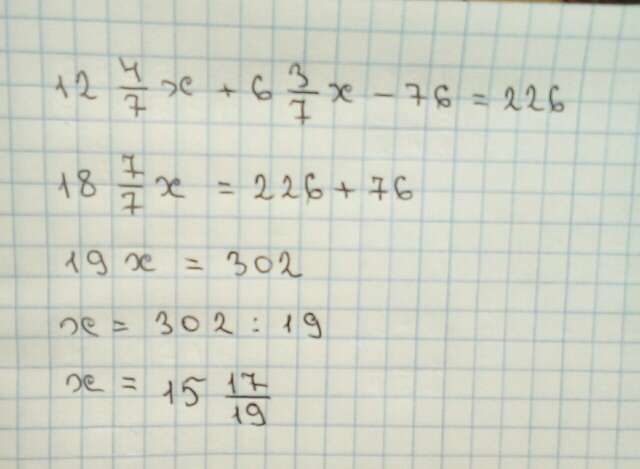 12 4/7 x + 6 3/7 x - 76 = 226
18 7/7 x = 226 + 76
19 x = 302
x = 302 : 19
x = 15 17/19